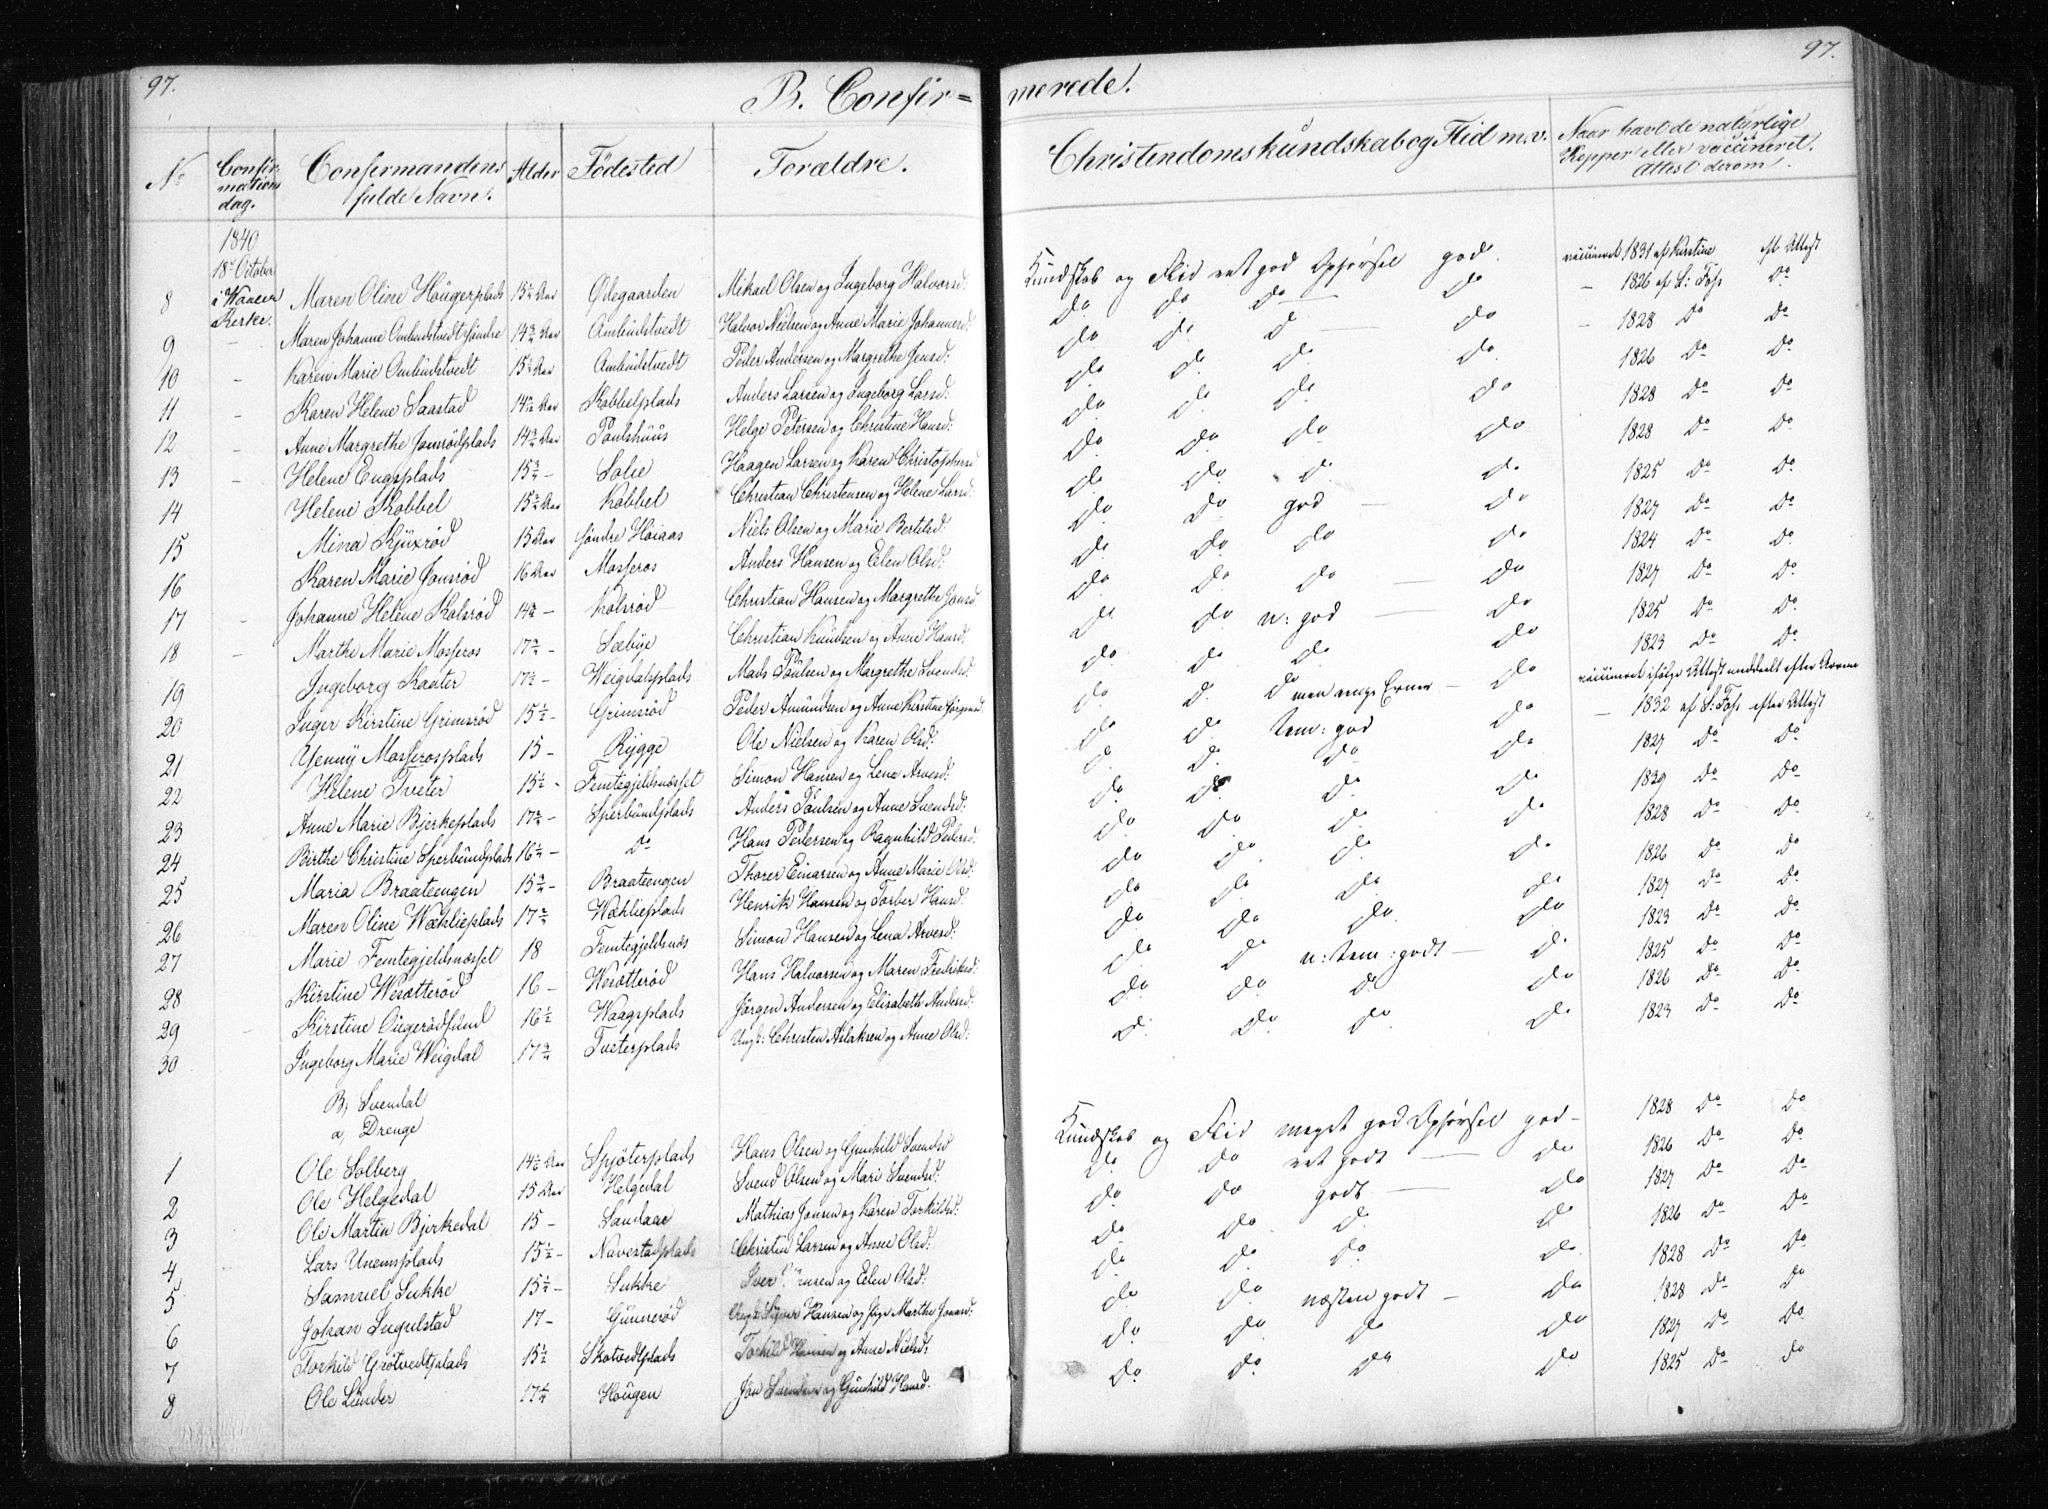 97.
97.
B. Confir=
merede.
No
Confir-
mations
dag.
Confirmandens
fulde Navn.
Alder
Fødested
Forældre.
Christendomskundskab og Flid m.v.
Naar havt de naturlige
Kopper eller vaccineret.
Attest derom.
1840
18de October
i Waaler
Kirke.
8 Maren Oline Hougerplads 15 1/4 Aar Ødegaarden Mikael Olsen og Ingeborg Halvorsd: Kundskab og Flid ret god Opførsel god. vaccineret 1831 af Kirstine eft Attest
9 Maren Johanne Ombudstvedt søndre 14 3/4 Aar Ombudstvedt Halvor Nielsen og Anne Marie Johannesd: Do Do Do Do 1826 af L: Foss Do
10 Karen Marie Ombudstvedt 15 1/2 Aar Ombudstvedt Peder Andersen og Margrethe Jensd: Do Do Do Do 1828 Do Do
11 Karen Helene Saastad Aar Kobbelplads Anders Larsen og Ingeborg Larsd: Do Do Do Do 1826 Do Do
12 Anne Margrethe Jonsrødplads 14 3/4 Aar Paulshuus Helge Petersen og Christine Hansd: Do Do Do Do 1828 Do Do
13 Helene Engsplads 15 3/4 - Solie Haagen Larsen og Karen Christophersd Do Do Do Do 1828 Do Do
14 Helene Kobbel 15 3/4 Aar Kobbel Christian Christensen og Helene Larsd: Do Do Do Do 1825 Do Do
15 Mina Kjuxrød 15 Aar søndre Høiaas Niels Olsen og Marie Bertelsd: Do Do god Do 1827 Do Do
16 Karen Marie Jonsrød 16 Aar Mosseros Anders Hansen og Elen Olsd: Do Do Do Do 1824 Do Do
17 Johanne Helene Kolsrød 14 3/4 - Kolsrød Christian Hansen og Margrethe Jonsd Do Do Do Do 1827 Do Do
18 Marthe Marie Mosseros 17 3/4 - Sæbye Christian Knudsen og Anne Hansd: Do Do n: god Do 1825 Do Do
19 Ingeborg Kaater 17 1/2 - Weigdalsplads Mads Poulsen og Margrethe Svendsd: Do Do Do Do 1823 Do Do
20 Inger Kirstine Grimsrød 15 1/2 - Grimsrød Peder Amundsen og Anne Kirstine Jørgensd Do D. Do men ringe Evner Do vaccineret ifølge Attest meddeelt efter
21 Yenny Mosserosplads 15 - Rygge Ole Nielsen og Karen Olsd: Do Do tem: god Do 1832 af L: Foss efter Attest
22 Helene Tveter 15 1/2 - Femtegjeldsnæsset Simon Hansen og Lena Arvesd: Do Do Do Do 1827 Do Do
23 Anne Marie Bjerkeplads 17 3/4 - Sperbundplads Anders Poulsen og Anne Svendsd: Do Do Do Do 1839 Do Do
24 Birthe Christine Sperbundplads 16 1/4 - Do Hans Pedersen og Ragnhild Pedersd: Do Do Do Do 1828 Do Do
25 Maria Braateengen 15 3/4 - Braateengen Thorer Einarsen og Anne Marie Olsd: Do Do Do Do 1826 Do Do
26 Maren Oline Wæhlieplads 17 3/4 Wæhlieplads Henrik Hansen og Torber Hansd: Do Do Do Do 1827 Do Do
27 Marie Femtegjeldsnæsset 18 Femtegjeldsnæs Simon Hansen og Lena Arvesd: Do Do Do Do 1823 Do Do
28 Kirstine Wesætterød 16 - Wesætterød Hans Halvorsen og Maren Fredriksd: Do Do n: tem: godt Do 1825 Do Do
29 Kirstine Ougerødsund 16 1/2 Waagsplads Jørgen Andersen og Elisabeth Andersd: Do Do Do Do 1826 Do Do
30 Ingeborg Marie Weigdal 17 3/4 Tveterplads Ungk: Christen Aslaksen og Anne Olsd: Do Do Do Do 1823 Do Do
B, Svendal
a, Drenge
1 Ole Solberg 14 1/2 Aar Spjøterplads Hans Olsen og Gunhild Svendsd Kundskab og Flid meget god Opførsel god- 1828 Do Do
2 Ole Helgedal 15 Aar Helgedal Svend Olsen og Mari Svendsd: Do Do ret godt Do 1826 Do Do
3 Ole Martin Bjerkedal 15 - Sandaae Mathias Jonsen og Karen Torkildsd: Do Do godt Do 1827 Do Do
4 Lars Unemsplads 15 1/2 - Navestadplads Christen Larsen og Anne Olsd: Do Do Do Do 1826 Do Do
5 Samuel Sukke 15 1/2 - Sukke Iver og Elen Olsd: Do Do Do Do 1828 Do Do
6 Johan Ingulstad 17 - Gunnerød Hansen og Marthe Jonsd: Do Do næsten godt Do 1828 Do Do
7 Torkild Grøtvedtplads 15 1/2 Skotvedtplads Torkild Hansen og Anne Nielsd: Do Do Do Do 1827 Do Do
8 Ole Lunder 17 1/4 Hougen Jon og Gunhild Hansd. Do Do Do Do 1825 Do Do